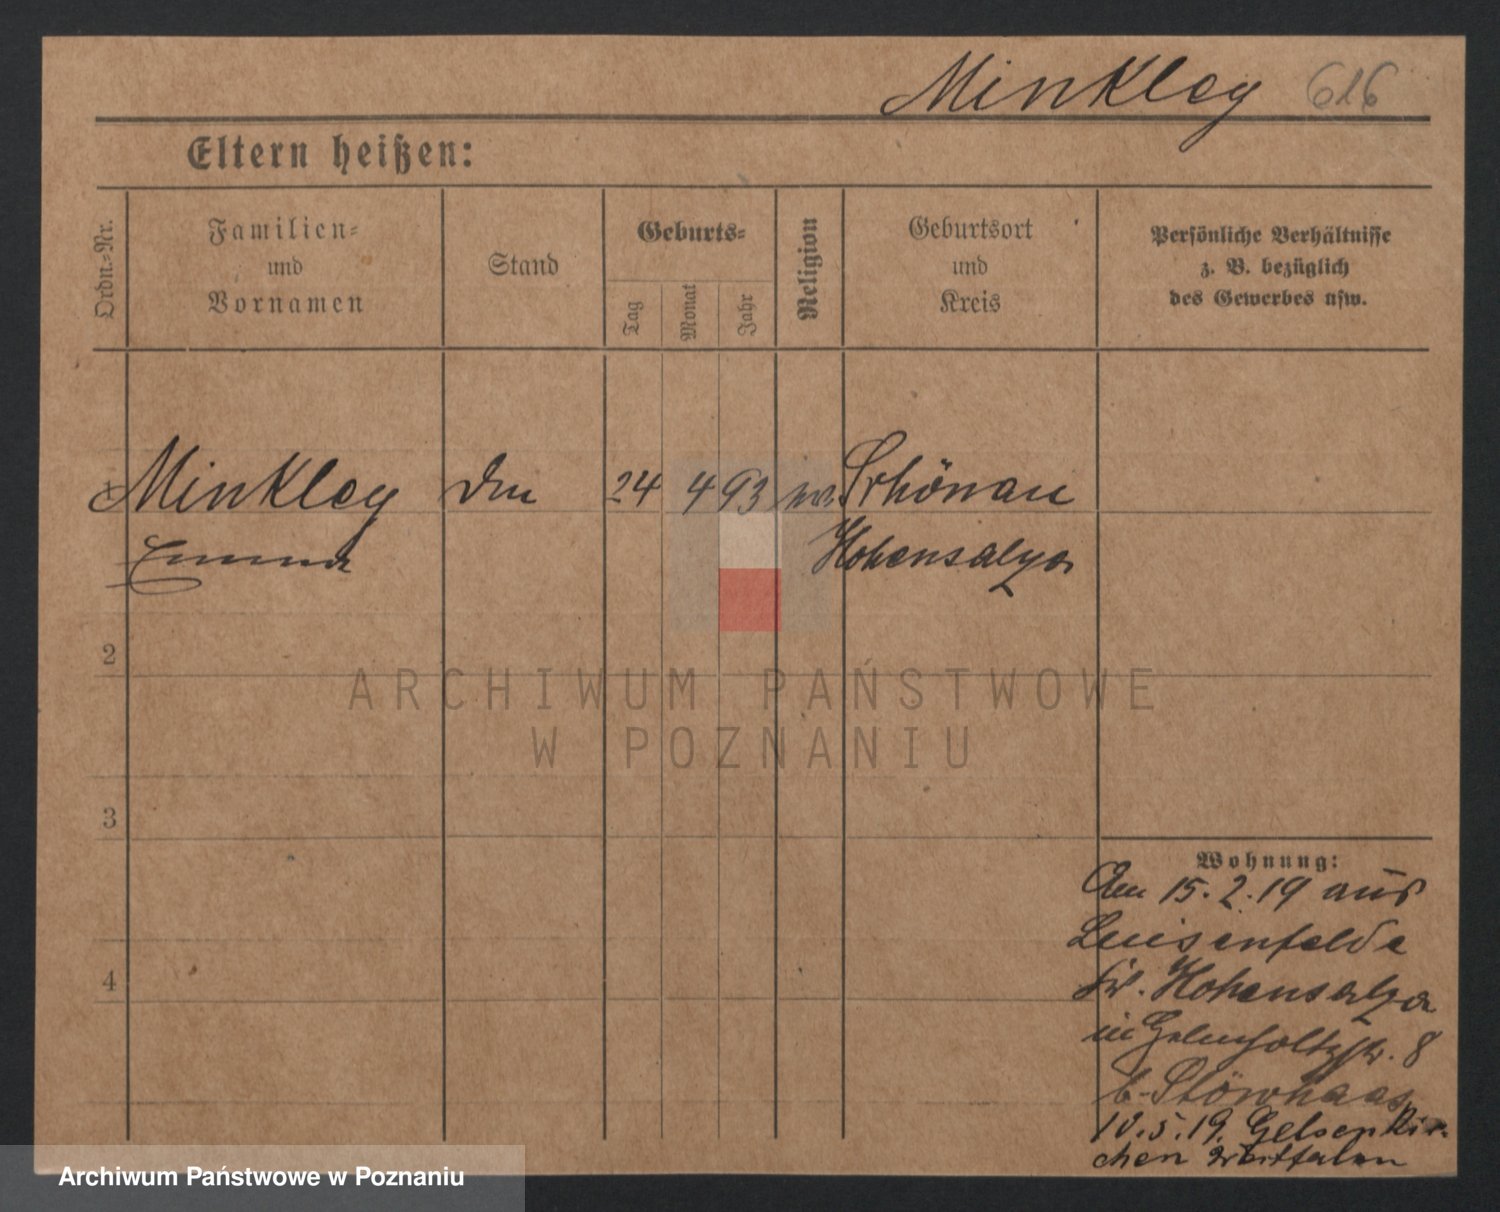 Minkley 616
Eltern heißen:
Ordn.-Nr.
Familien-
und
Vornamen
Stand
Geburts-
Tag
Monat
Jahr
Religion
Geburtsort
und
Kreis
Persönliche Verhältnisse
z. B. bezüglich
des Gewerbes usw.
1 Minkley 24 4 93 Schönau
Emma Hohensalza
2
3
4
Wohnung:
Am 15.2.19 aus
Luisenfelde
Kr. Hohensalza
in 8
b.
10.5.19. Gelsenkir-
chen Westfalen
ARCHIWUM PAŃSTWOWE
W POZNANIU
Archiwum Państwowe w Poznaniu